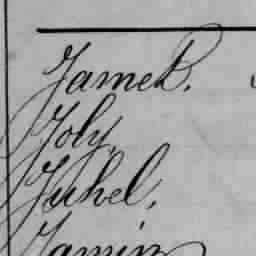 Jamet.
Joly,
Juhel,
Jamin